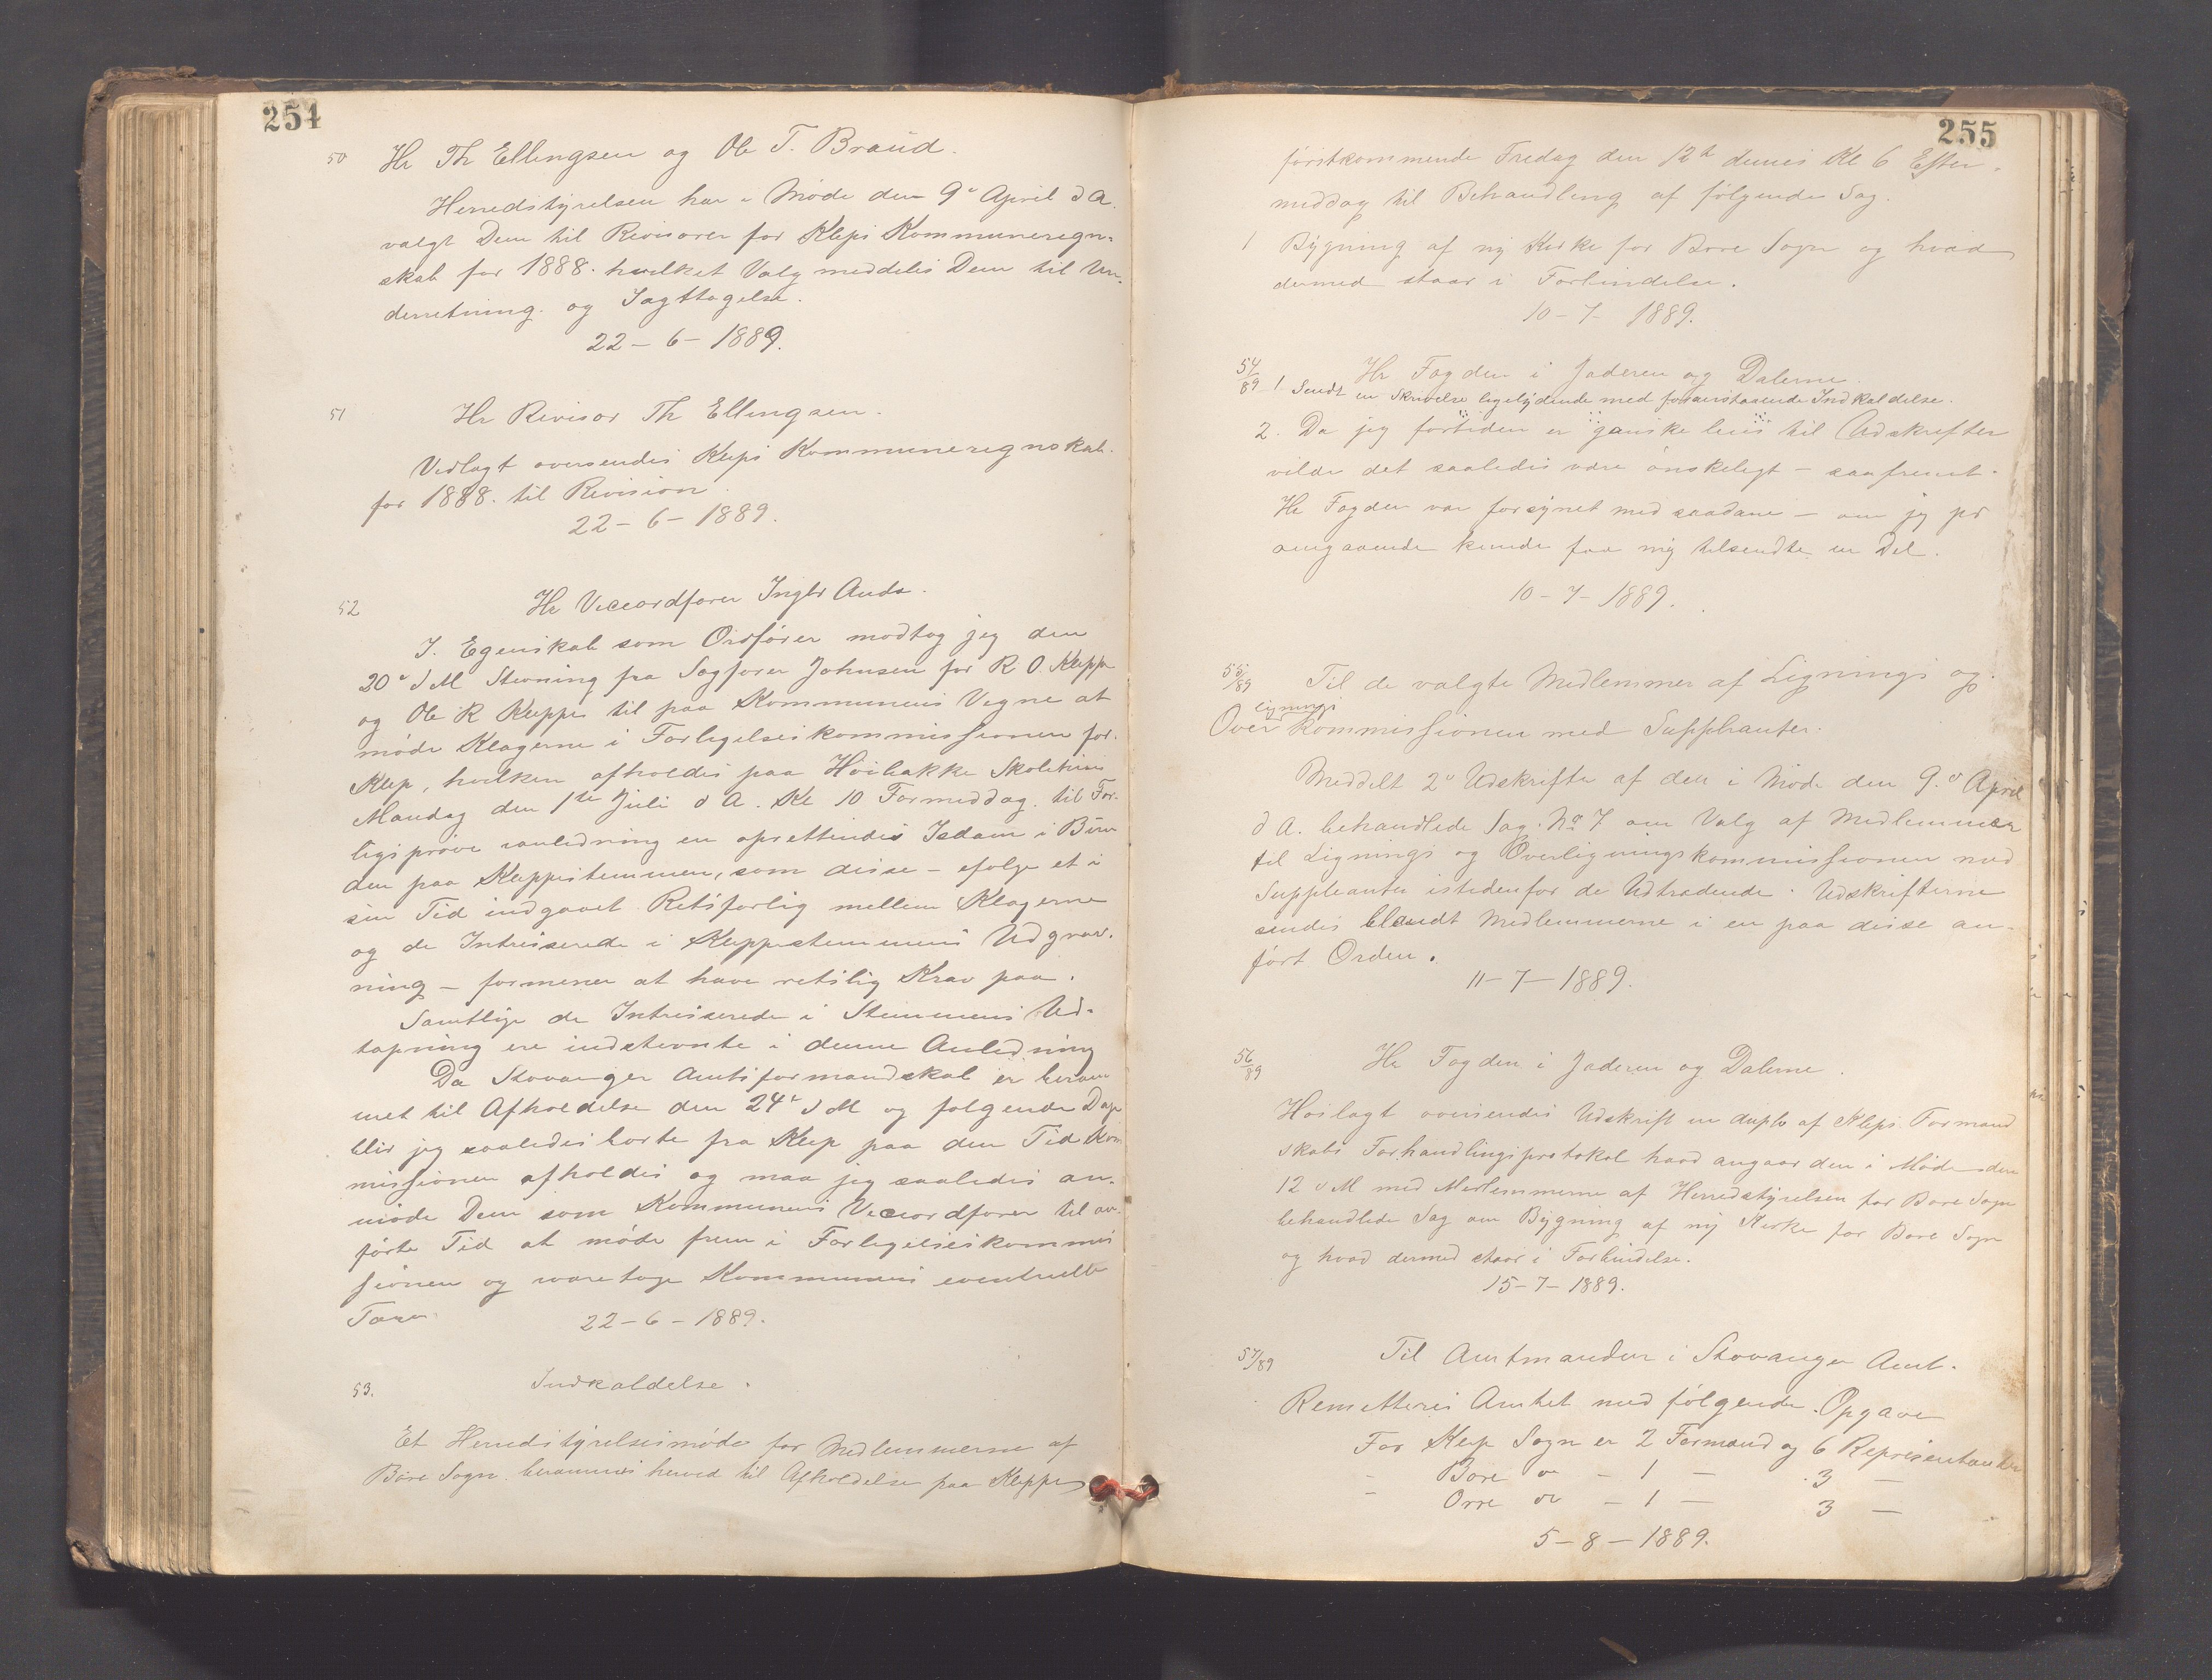 254
50 Hr Th Ellingsen og Ole T. Braud.
Herredstyrelsen har i Møde den 9de April d A.
valgt Dem til Revisorer for Kleps Kommuneregn-
skab for 1888. hvilket Valg meddeles Dem til Un-
derretning. og Iagttagelse.
22-6-1889.
51 Hr Revisor Th Ellingsen.
Vedlagt oversendes Kleps Kommuneregnskab.
for 1888. til Revision.
22-6-1889.
52 Hr Viceordfører Ingbr Anda.
I. Egenskab som Ordfører modtog jeg den
20de d M Stevning fra Sagfører Johnsen for R O. Kleppe
og Ole R Kleppe til paa Kommunens Vegne at
møde Klagerne i Forligelseskommissionen for.
Klep, hvilken afholdes paa Høibakke Skolehus
Mandag den 1ste Juli d A. Kl 10 Formiddag. til For-
ligsprøve anledning en oprettendes Isdam i
den paa Kleppestemmen, som disse - efølge et i
sin Tid indgaaet Retsforlig mellem Klagerne
og de Intresserede i Kleppestemmens Udgrav-
ning - formener at have retslig Krav paa.
Samtlige de Intresserede i Stemmens Ud-
tapning ere indstevnte i denne Anledning
Da Stavanger Amtsformandskab er beram
met til Afholdelse den 24de d M og følgende Dage
blir jeg saaledes borte fra Klep paa den Tid Kom
missionen afholdes og maa jeg saaledes an-
mode Dem som Kommunens Viceordfører til an-
førte Tid at møde frem i Forligelseskommis
sionen og varetage Kommunens eventuelle
Tarv. 22-6-1889.
53. Indkaldelse.
Et Herredstyrelsesmøde for Medlemmerne af
Bore Sogn berammes herved til Afholdelse paa Kleppe
255
førstkommende Fredag den 12te dennes Kl 6 Efter.
middag til Behandling af følgende Sag.
1 Bygning af ny Kirke for Bore Sogn og hvad
dermed staar i Forbindelse.
10-7-1889.
54/89 Hr Fogden i Jæderen og Dalerne.
1 Sendt en Skrivelse ligelydende med foranstaaende Indkaldelse.
2. Da jeg fortiden er ganske lens til Udskrifter
vilde det saaledes være ønskeligt - saafremt.
Hr Fogden var forsynet med saadane - om jeg pr
omgaaende kunde faa mig tilsendte en Del.
10-7-1889.
55/89 Til de valgte Medlemmer af Lignings og.
lignings
Over kommissionen med Supphanter.
Meddelt 2de Udskrifte af den i Møde den 9.de April
d A. behandlede Sag. No 7 om Valg af Medlemmer
til Lignings og Overligningskommissionen med
Suppleanter istedenfor de Udtrædende. Udskrifterne
sendes blandt Medlemmerne i en paa disse an-
ført Orden.
11-7-1889.
56/89 Hr Fogden i Jæderen og Dalerne.
Hoslagt oversendes Udskrift in duplo af Kleps Formand
skabs Forhandlingsprotokol hvad angaar den i Møde den
12 d M med Medlemmerne af Herredstyrelsen for Bore Sogn
behandlede Sag om Bygning af ny Kirke for Bore Sogn
og hvad dermed staar i Forbindelse.
15-7-1889.
57/89 Til Amtmanden i Stavanger Amt.
Remitteres Amtet med følgende. Opgave
For Klep Sogn er 2 Formænd og 6 Repræsentanter
- Bore do - 1 - 3 -
- Orre do - 1 - 3 -
5-8-1889.